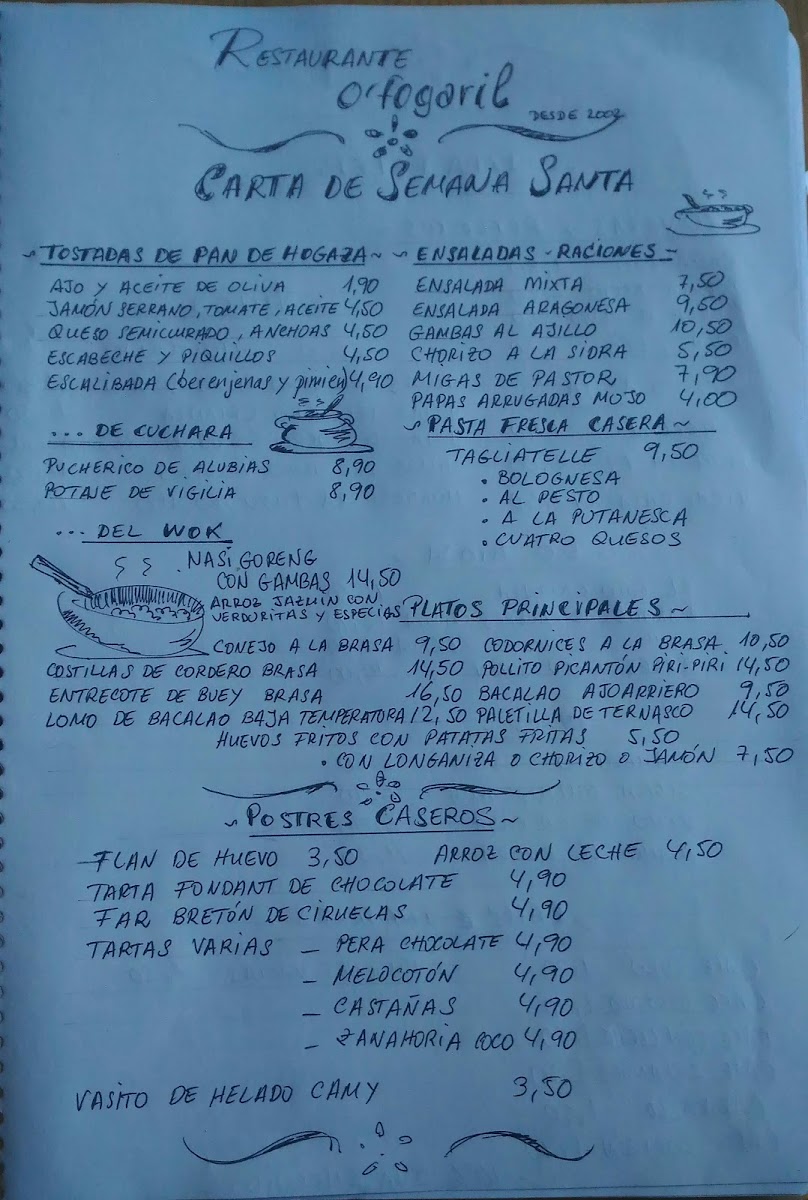 RESTAURANTE
O'fogaril
DESDE 2002
CARTA DE SEMANA SANTA
~ TOSTADAS DE PAN DE HOGAZA ~
AJO Y ACEITE DE OLIVA 1,90
JAMÓN SERRANO, TOMATE, ACEITE 4,50
QUESO SEMICURADO, ANCHOAS 4,50
ESCABECHE Y PIQUILLOS 4,50
ESCALIBADA (berenjenas y pimien) 4,90
... DE CUCHARA
PUCHERICO DE ALUBIAS 8,90
POTAJE DE VIGILIA 8,90
... DEL WOK
NASI GORENG
CON GAMBAS 14,50
ARROZ JAZMÍN CON
VERDURITAS Y ESPECIAS
~ ENSALADAS - RACIONES ~
ENSALADA MIXTA 7,50
ENSALADA ARAGONESA 9,50
GAMBAS AL AJILLO 10,50
CHORIZO A LA SIDRA 5,50
MIGAS DE PASTOR 7,90
PAPAS ARRUGADAS MOJO 4,00
~ PASTA FRESCA CASERA ~
TAGLIATELLE 9,50
• BOLOGNESA
• AL PESTO
• A LA PUTANESCA
• CUATRO QUESOS
PLATOS PRINCIPALES ~
CONEJO A LA BRASA 9,50 CODORNICES A LA BRASA 10,50
COSTILLAS DE CORDERO BRASA 14,50 POLLITO PICANTÓN PIRI-PIRI 14,50
ENTRECOTE DE BUEY BRASA 16,50 BACALAO AJOARRIERO 9,50
LOMO DE BACALAO BAJA TEMPERATURA 12,50 PALETILLA DE TERNASCO 14,50
HUEVOS FRITOS CON PATATAS FRITAS 5,50
• CON LONGANIZA O CHORIZO O JAMÓN 7,50
~ POSTRES CASEROS ~
FLAN DE HUEVO 3,50 ARROZ CON LECHE 4,50
TARTA FONDANT DE CHOCOLATE 4,90
FAR BRETÓN DE CIRUELAS 4,90
TARTAS VARIAS – PERA CHOCOLATE 4,90
– MELOCOTÓN 4,90
– CASTAÑAS 4,90
– ZANAHORIA COCO 4,90
VASITO DE HELADO CAMY 3,50